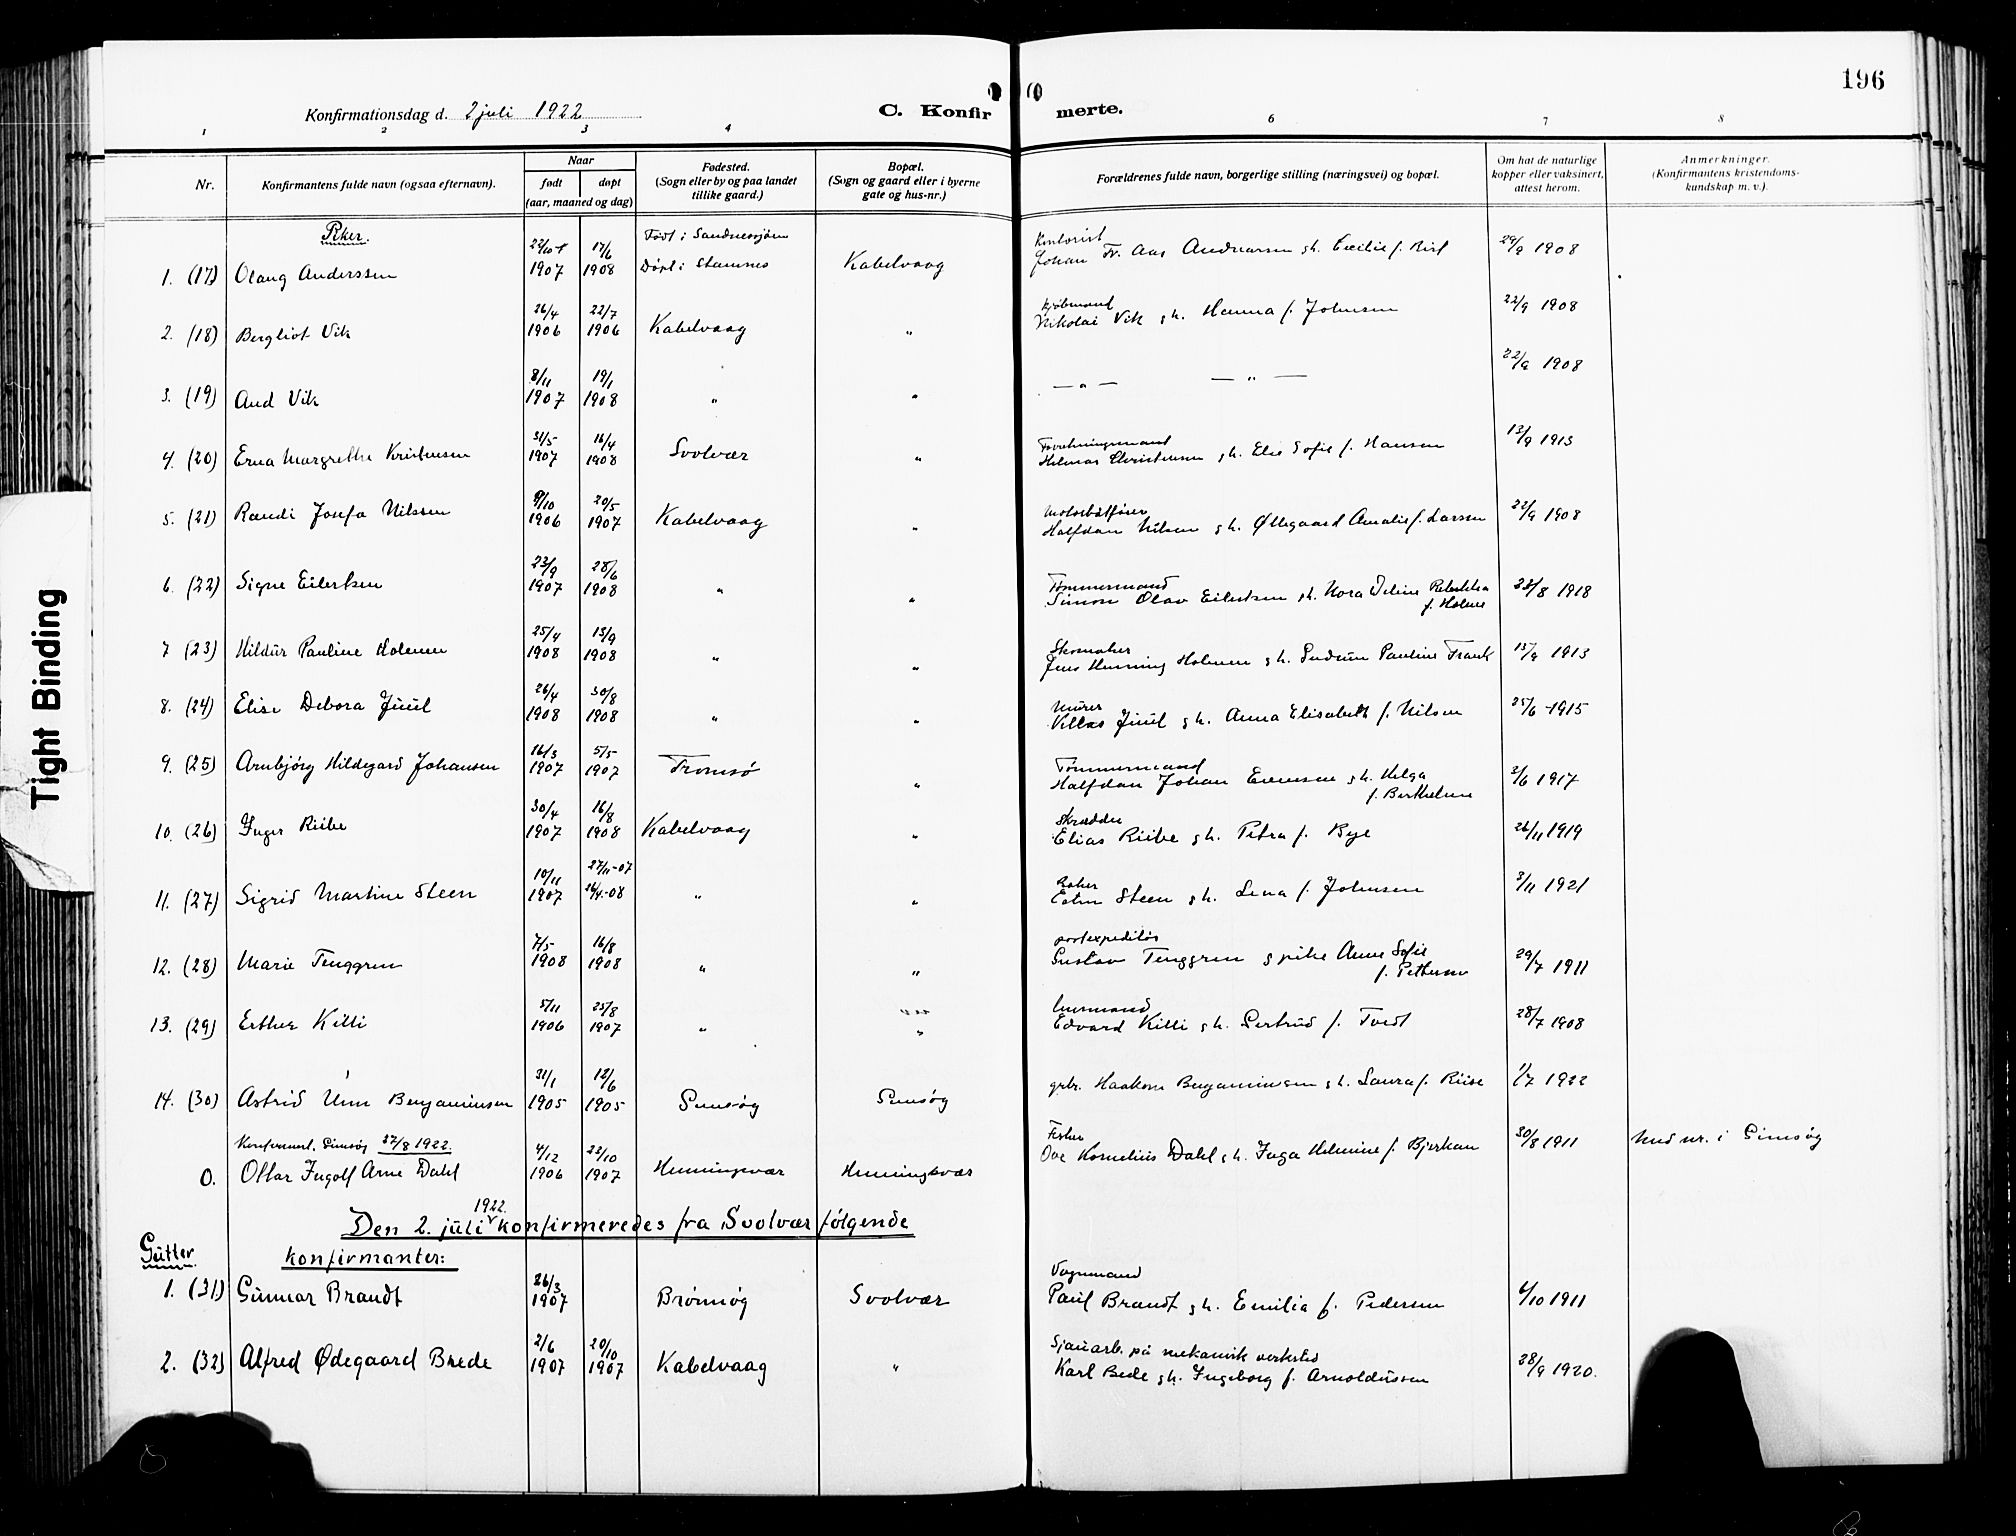 196
Konfirmationsdag d. 2 juli 1922
C. Konfirmerte.
1 2 3 4 6 7 8
Nr.
Konfirmantens fulde navn (ogsaa efternavn).
Naar
født døpt
(aar, maaned og dag)
Fødested.
(Sogn eller by og paa landet
tillike gaard.)
Bopæl.
(Sogn og gaard eller i byerne
gate og hus-nr.)
Forældrenes fulde navn, borgerlige stilling (næringsvei) og bopæl.
Om hat de naturlige
kopper eller vaksinert,
attest herom.
Anmerkninger.
(Konfirmantens kristendoms-
kundskap m. v.).
Piker.
1. (17) Olaug Anderssen 1907 17/6 1908 Født i Sandnessjøen Døpt i Stamnes Kabelvaag
Kontorist
Johan Fr. Aas Andreassen gh. Cecilie f. 29/9 1908
2. (18) Bergliot Vik 26/4 1906 22/7 1906 Kabelvaag "
Kjøbmand
Nikolai Vik gh. Hanna f. Johnsen 22/9 1908
3. (19) Aud Vik 8/11 1907 19/1 1908 " "
— " — — " — 22/9 1908
4. (20) Erna Margrethe Kristensen 31/5 1907 16/4 1908 Svolvær "
Forretningsmand
Hilmar Christensen gh. Elie Sofie f. Hansen 13/9 1913
5. (21) Randi Josefa Nilssen 9/10 1906 20/5 1907 Kabelvaag "
Motorbåtfører
Halfdan Nilsen gh. Øllegaard Amalie f. Larssen 22/9 1908
6. (22) Signe Eilertsen 23/9 1907 28/6 1908 " "
Tømmermand
Simon Olav Eilertsen gh. Nora Deline Rebekka
f. Holme 28/8 1918
7 (23) Hildur Pauline Holmen 25/4 1908 13/9 1908 " "
Skomaker
Jens Henning Holmen gh. Gudrun Pauline Frank 13/9 1913
8. (24) Elise Debora Juul 26/4 1908 30/8 1908 " "
Murer
Villas Juul gh. Anna Elisabeth f. Nilsen 25/6 - 1915
9. (25) Arnbjørg Hildegard Johansen 16/3 1907 5/5 1907 Tromsø "
Tømmermand
Halfdan Johan Evensen gh. Helga
f. Berthelsen 2/6 1917
10. (26) Inger Riibe 30/4 1907 16/8 1908 Kabelvaag "
Skrædder
Elias Riibe gh. Petra f. Bye 26/11 1919
11. (27) Sigrid Martine Steen 10/11 1907 27/11-07 26/4-08 " "
Baker
Edin Steen gh. Lena f. Johnsen 3/11 1921
12. (28) Marie Tenggren 7/5 1908 16/8 1908 " "
postexpeditør
Gustav Tenggren g pike Anne Sofie
f. Pettersen 29/7 1911
13. (29) Esther Killi 5/11 1906 25/8 1907 " "
Edvard Killi gh. Gertrud f. Tvedt 28/7 1908
14. (30) Astrid Unn Benjaminsen 31/1 1905 12/6 1905 Gimsøy Gimsøy
grbr. Haakon Benjaminsen gh. Laura f. Riise 1/7 1922
Konfirmert Gimsøy 27/8 1922.
0. Ottar Ingolf Arne Dahl 4/12 1906 22/10 1907 Henningsvær Henningsvær
Fisker
Ove Kornelius Dahl gh. Inga Helmine f. Bjerkan 30/8 1911 Und nr. i Gimsøy
Den 2. juli 1922. konfirmeredes fra Svolvær følgende
Gutter
konfirmanter:
1. (31) Gunnar Brandt 26/3 1907 Brønnøy Svolvær
Vognmand
Paul Brandt gh. Emilia f. Pedersen 6/10 1911
2. (32) Alfred Ødegaard Brede 2/6 1907 20/10 1907 Kabelvaag "
Sjauarb. på mekanisk verksted
Karl Bede gh. Ingeborg f. Arnoldussen 28/9 1920.
Tight Binding